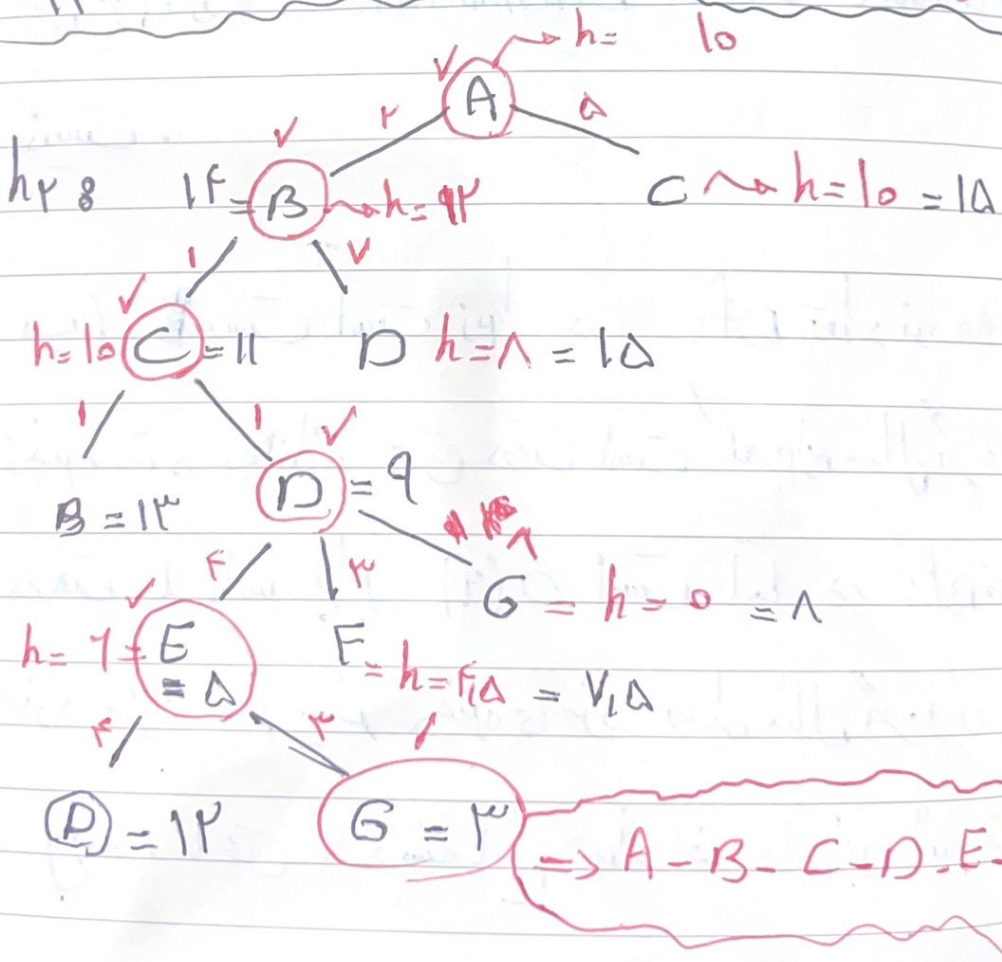 h= 10
A
۲ ۵
h۲ :
۱۴ = B h= ۱۲
C h=10 = ۱۵
۱ ۷
h=10 C = ۱۱
D h=۸ = ۱۵
۱ ۱
B = ۱۳
D = ۹
۴ ۳ ۸
G = h = 0 = ۸
h= ۱ = E = ۵
F = h=۴,۵ = ۷,۵
۴ ۳
D = ۱۲
G = ۳
=> A - B - C - D - E -